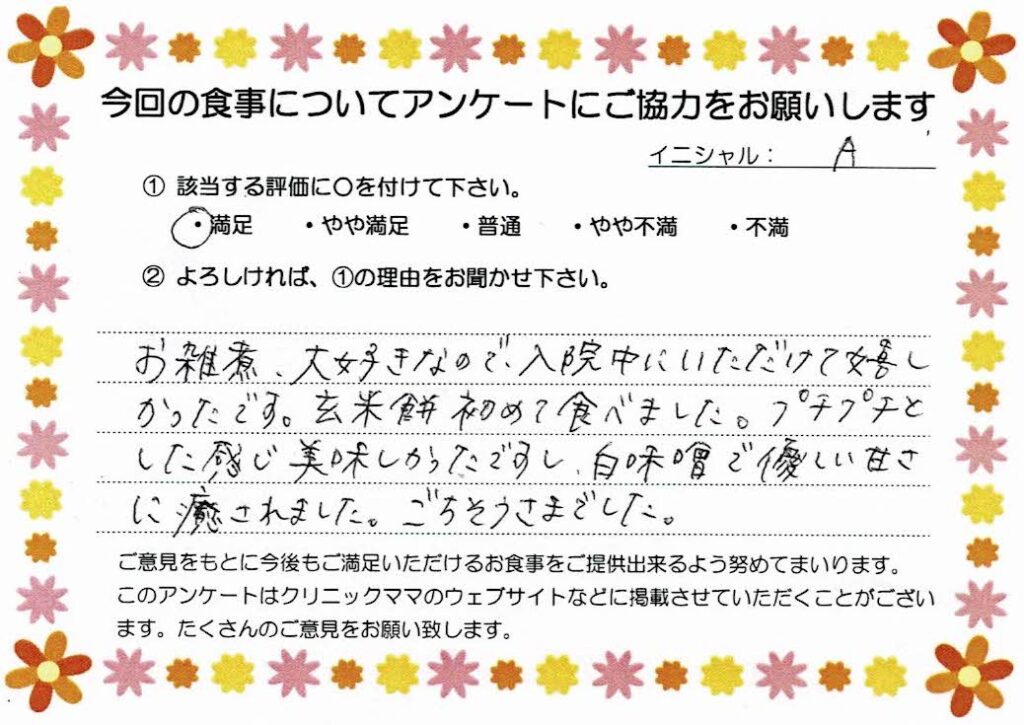 今回の食事についてアンケートにご協力をお願いします
イニシャル： A
① 該当する評価に〇を付けて下さい。
・満足 ・やや満足 ・普通 ・やや不満 ・不満
② よろしければ、①の理由をお聞かせ下さい。
お雑煮、大好きなので、入院中にいただけて嬉し
かったです。玄米餅初めて食べました。プチプチと
した感じ美味しかったですし、白味噌で優しい甘さ
に癒されました。ごちそうさまでした。
ご意見をもとに今後もご満足いただけるお食事をご提供出来るよう努めてまいります。
このアンケートはクリニックママのウェブサイトなどに掲載させていただくことがござい
ます。たくさんのご意見をお願い致します。